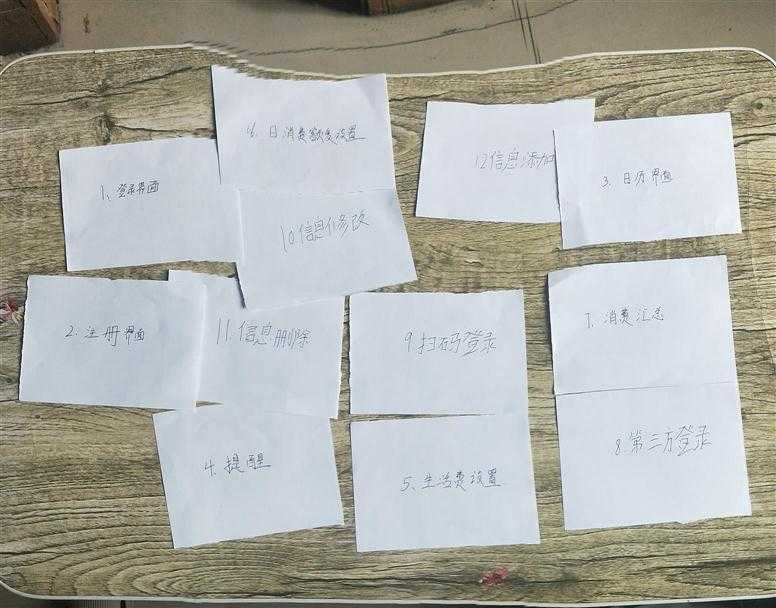 6. 日消费额度设置
12信息添加
1、登录界面
3、日历界面
10.信息修改
2、注册界面
11.信息删除
9.扫码登录
7、消费汇总
4、提醒
5、生活费设置
8.第三方登录